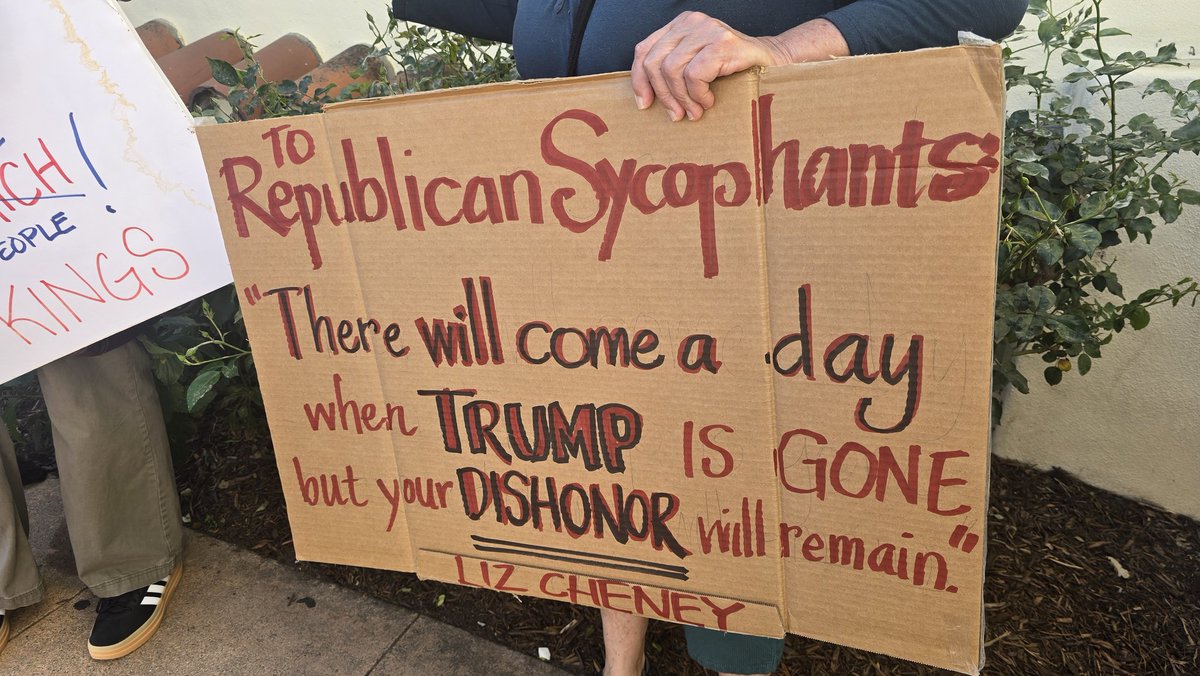 TO
Republican Sycophants
"There will come a day
when TRUMP IS GONE
but your DISHONOR will remain."
LIZ CHENEY
!
KINGS